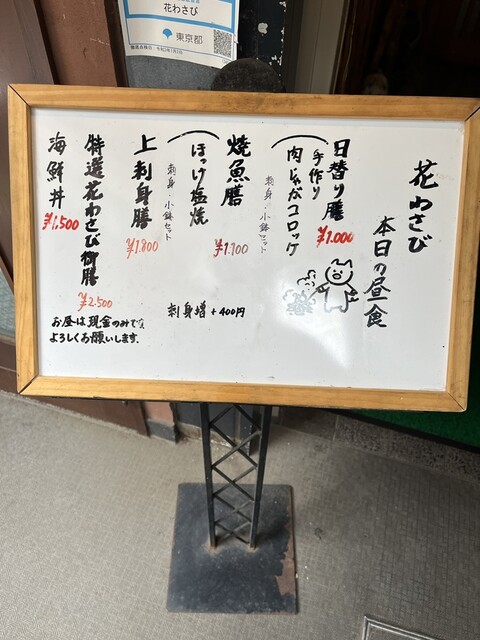 花わさび
東京都
花わさび
本日の昼食
日替り膳
手作り
肉じゃがコロッケ
¥1.000
刺身・小鉢セット
焼魚膳
ほっけ塩焼
¥1.100
刺身・小鉢セット
上刺身膳
¥1.800
特選花わさび御膳
¥2.500
海鮮丼
¥1,500
刺身増+400円
お昼は現金のみです
よろしくお願いします。